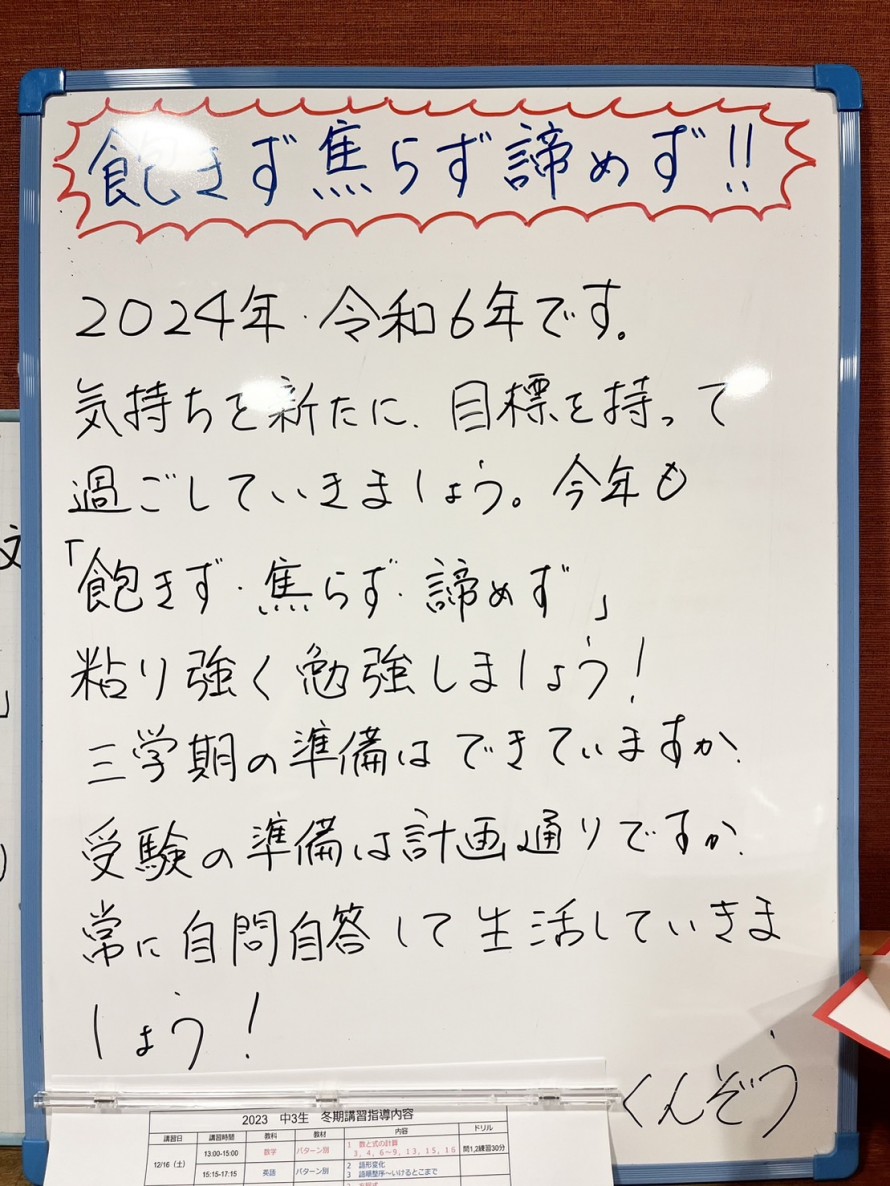 飽きず焦らず諦めず!!
2024年・令和6年です。
気持ちを新たに、目標を持って
過ごしていきましょう。今年も
「飽きず・焦らず・諦めず」
粘り強く勉強しましょう!
三学期の準備はできていますか、
受験の準備は計画通りですか、
常に自問自答して生活していきま
しょう!
くんぞう
2023 中3生 冬期講習指導内容
講習日 講習時間 教科 教材 内容 ドリル
12/16(土) 13:00-15:00 数学 パターン別 1 数と式の計算 問1,2練習30分
3, 4, 6~9, 13, 15, 16
15:15-17:15 英語 パターン別 2 語形変化
3 語順整序~いけるとこまで
文